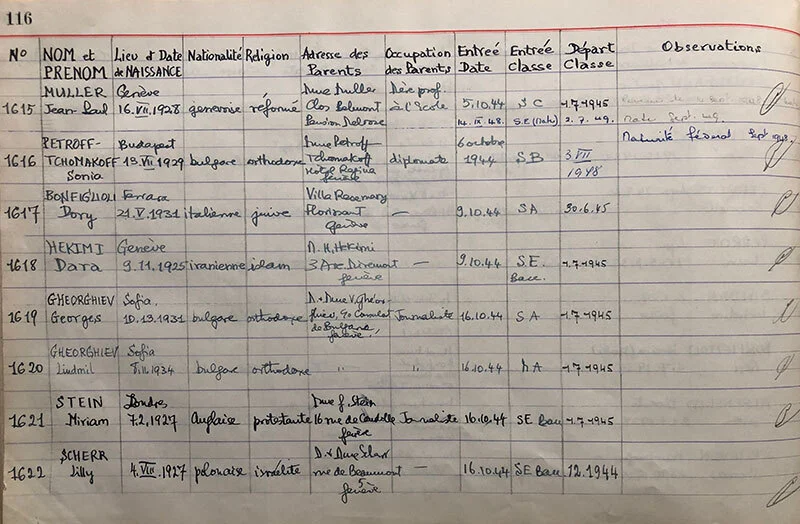 116
No NOM et PRENOM Lieu & Date de NAISSANCE Nationalité Religion Adresse des Parents Occupation des Parents Entrée Date Entrée Classe Départ Classe Observations
MULLER Genève Mme Muller Père prof.
1615 Jean-Paul 16.VII.1928 genevoise réformé Clos Belmont à l'Ecole 5.10.44 S C 1.7.1945
Pension 14.IX.48. S.E. (Mate) 2.7.49. Mate Sept. 49.
PETROFF- Budapest Mme Petroff 6 octobre Maturité fédéral Sept 1948
1616 TCHOMAKOFF 13.VII.1929 bulgare orthodoxe Tchomakoff diplomate 1944 S B 3 VII
Sonia Hotel Regina Genève 1948
BONFIGLIOLI Ferrara Villa Rosemary
1617 Dory 21.V.1931 italienne juive Florissant — 9.10.44 S A 30.6.45
Genève
HEKIMI Genève H. Hekimi
1618 Dara 9.11.1925 iranienne islam 3 — 9.10.44 S.E. 1.7.1945
Genève Bacc.
GHEORGHIEV Sofia D. & Mme V. Ghéor-
1619 Georges bulgare orthodoxe ghiev, Consulat Journaliste 16.10.44 S A 1.7.1945
de Bulgarie, Genève
GHEORGHIEV Sofia
1620 Liudmil bulgare orthodoxe " " 16.10.44 1.7.1945
STEIN Londres Mme J. Stein
1621 Miriam 7.2.1927 Anglaise protestante 16 rue de Candolle Journaliste 16.10.44 SE bacc 1.7.1945
Genève
SCHERR D. & Mme Scherr
1622 Lilly 4.VIII.1927 polonaise israélite rue de Beaumont — 16.10.44 SE bacc 12.1944
5 Genève